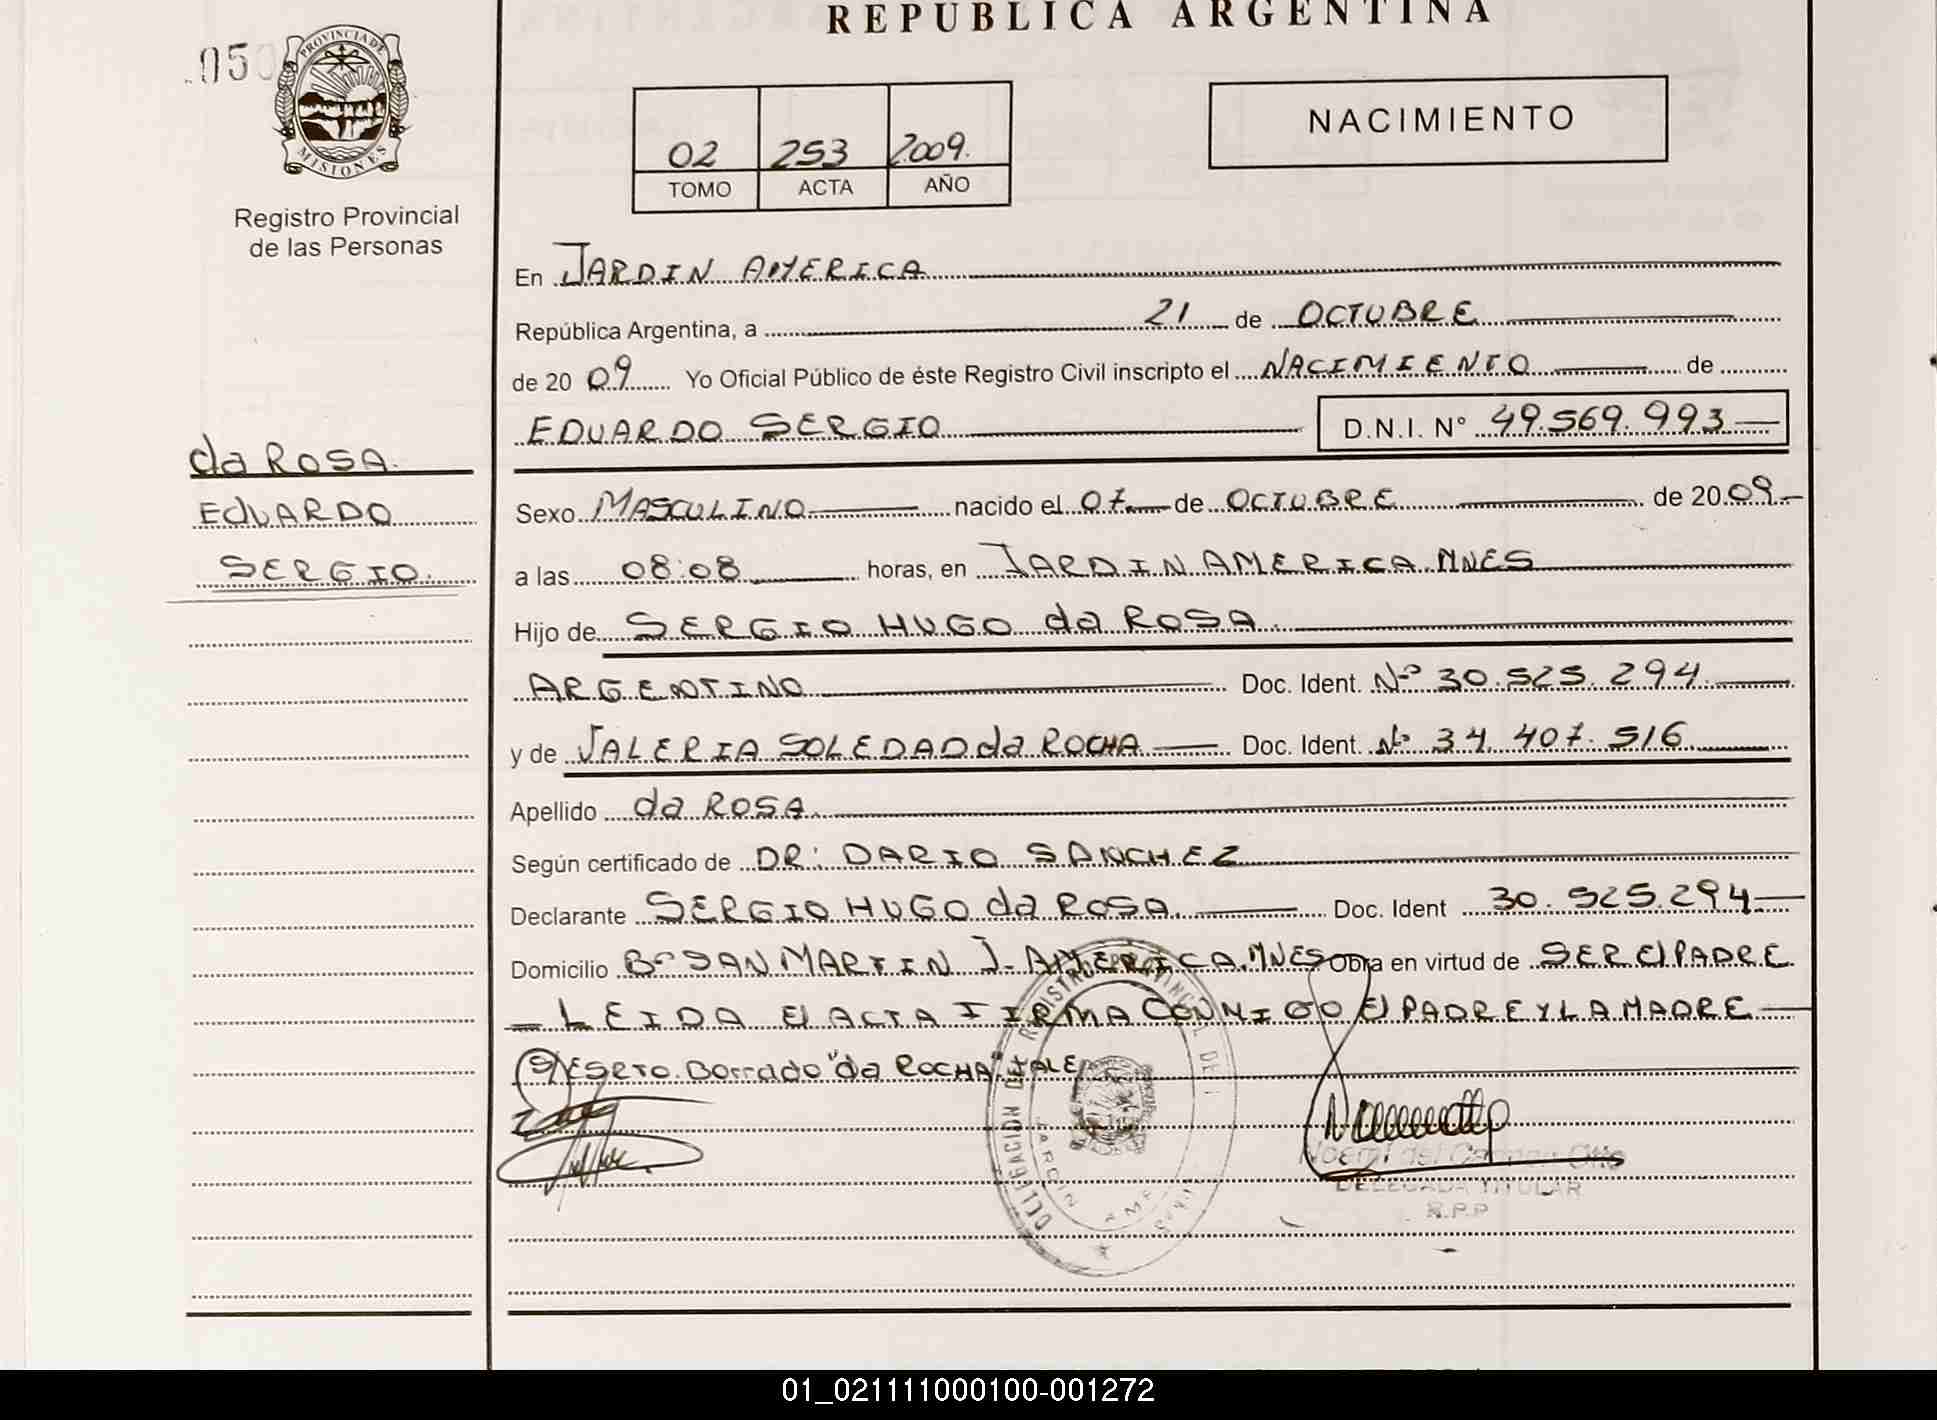 REPUBLICA ARGENTINA
050
PROVINCIA DE
MISIONES
Registro Provincial
de las Personas
02 253 2009.
TOMO ACTA AÑO
NACIMIENTO
En JARDIN AMERICA
República Argentina, a 21 de OCTUBRE
de 20 09 Yo Oficial Público de éste Registro Civil inscripto el NACIMIENTO de
EDUARDO SERGIO D.N.I. N° 49.569.993
da ROSA.
EDUARDO
SERGIO.
Sexo MASCULINO nacido el 07 de OCTUBRE de 2009.
a las 08:08 horas, en JARDIN AMERICA MNES
Hijo de SERGIO HUGO da ROSA.
ARGENTINO Doc. Ident. Nº 30.525.294.
y de VALERIA SOLEDAD da ROCHA Doc. Ident. Nº 34.407.516.
Apellido da ROSA.
Según certificado de DR: DARIO SANCHEZ
Declarante SERGIO HUGO da ROSA. Doc. Ident 30.525.294
Domicilio Bº SAN MARTIN J. AMERICA. MNES Obra en virtud de SER El PADRE
LEIDA El ACTA FIRMA CONMIGO El PADRE Y LA MADRE
Borrado "da ROCHA" VALE
DELEGACION DEL REGISTRO PROVINCIAL DE
JARDIN AME
Noemi del Carmen Otto
DELEGADA TITULAR
R.P.P
01_021111000100-001272